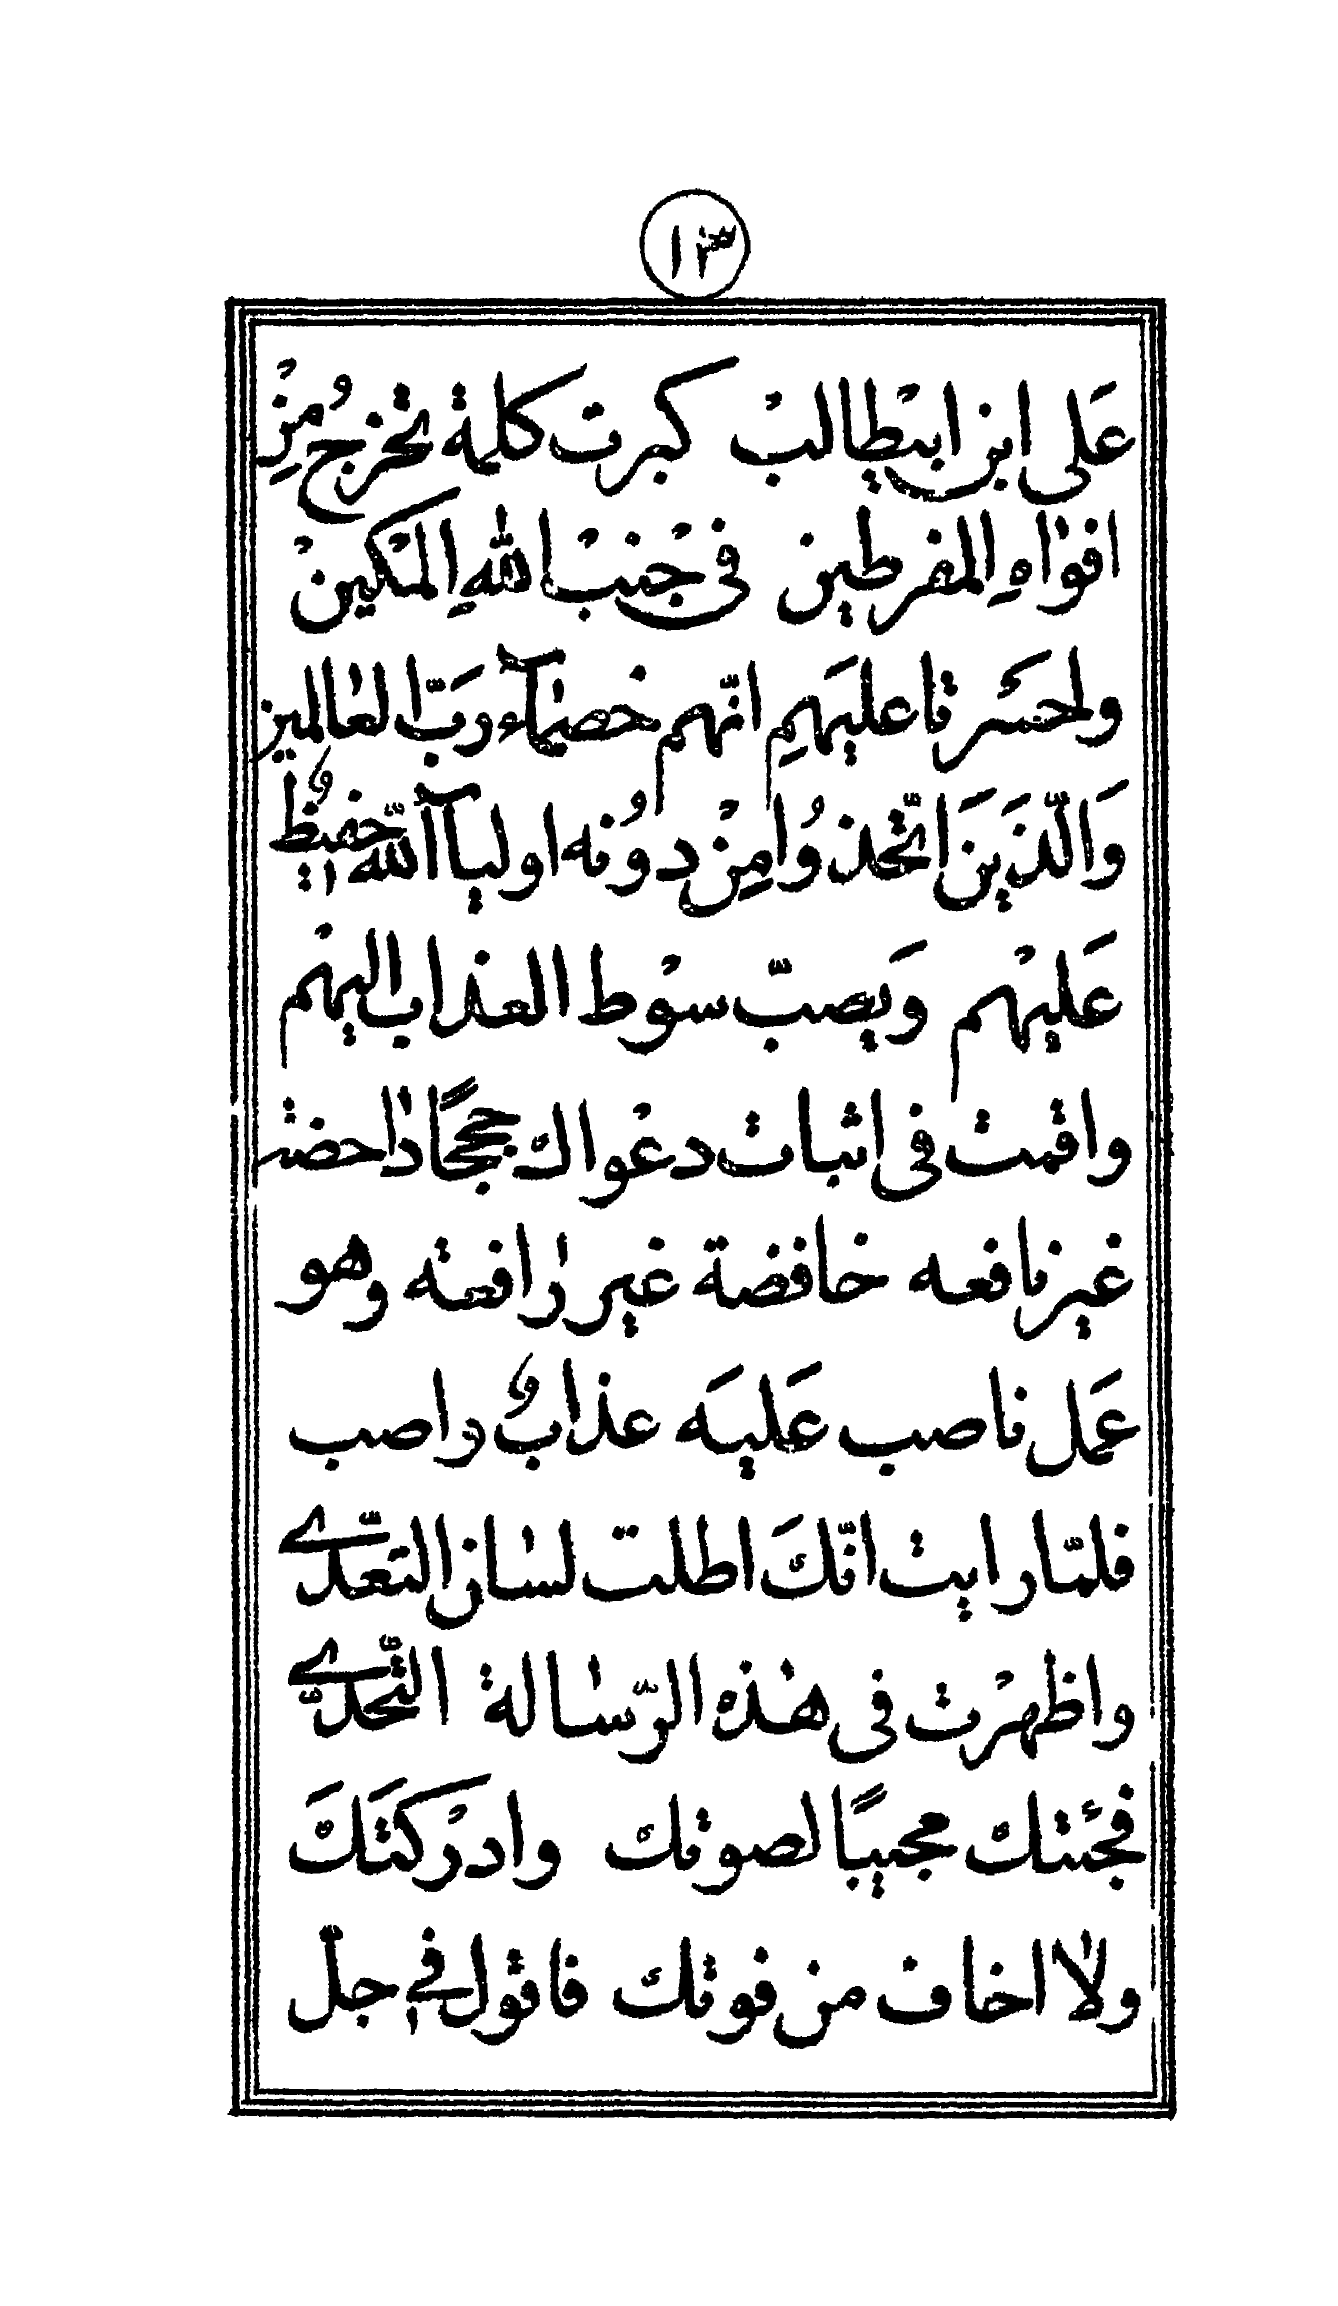 ١٣
عَلى ابن ابيْطالبْ كبرت كلمة تخرج مُنِْ
افوٰاهِ المفرطين فى جْنبْ اللهِ المْكينْ
واحسَرتا عليَهمِ انّهم خصمٰآء رَبّ العٰالمين
وَالّذَينَ اتّخذوُا مِنْ دوُنه اوليآ الله حفيظٌ
عَليهْم وَيصبّ سوْط العذاب اليهْم
واقمت فى اثبات دعوْاك حججًا دٰاحضة
غير نافعه خافضة غير رٰافعة وهو
عَمل ناصب عَليَه عذابٌ واصب
فلمّا رايت انّكَ اطلت لسٰان التعّدے
واظهرْت فى هٰذه الرّسٰالة التّحدّے
فجئتك مجيبًا لصوتك وادرْكتَكَ
ولٰا اخاف من فوتك فاقول فے جلّ